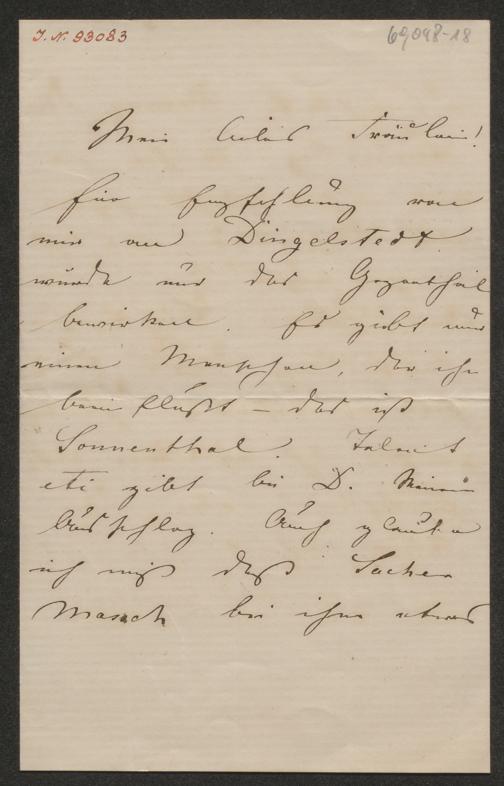 J. N. 93083
69098-18
Mein liebes Fräulein!
Eine Empfehlung von
mir an Dingelstedt
würde nur das Gegentheil
bewirken. Es gibt nur
einen Menschen, der ihn
beeinflußt – das ist
Sonnenthal. Talent
etc gibt bei D. keinen
Ausschlag. Auch glaube
ich nicht daß Sacher
Masoch bei ihm etwas